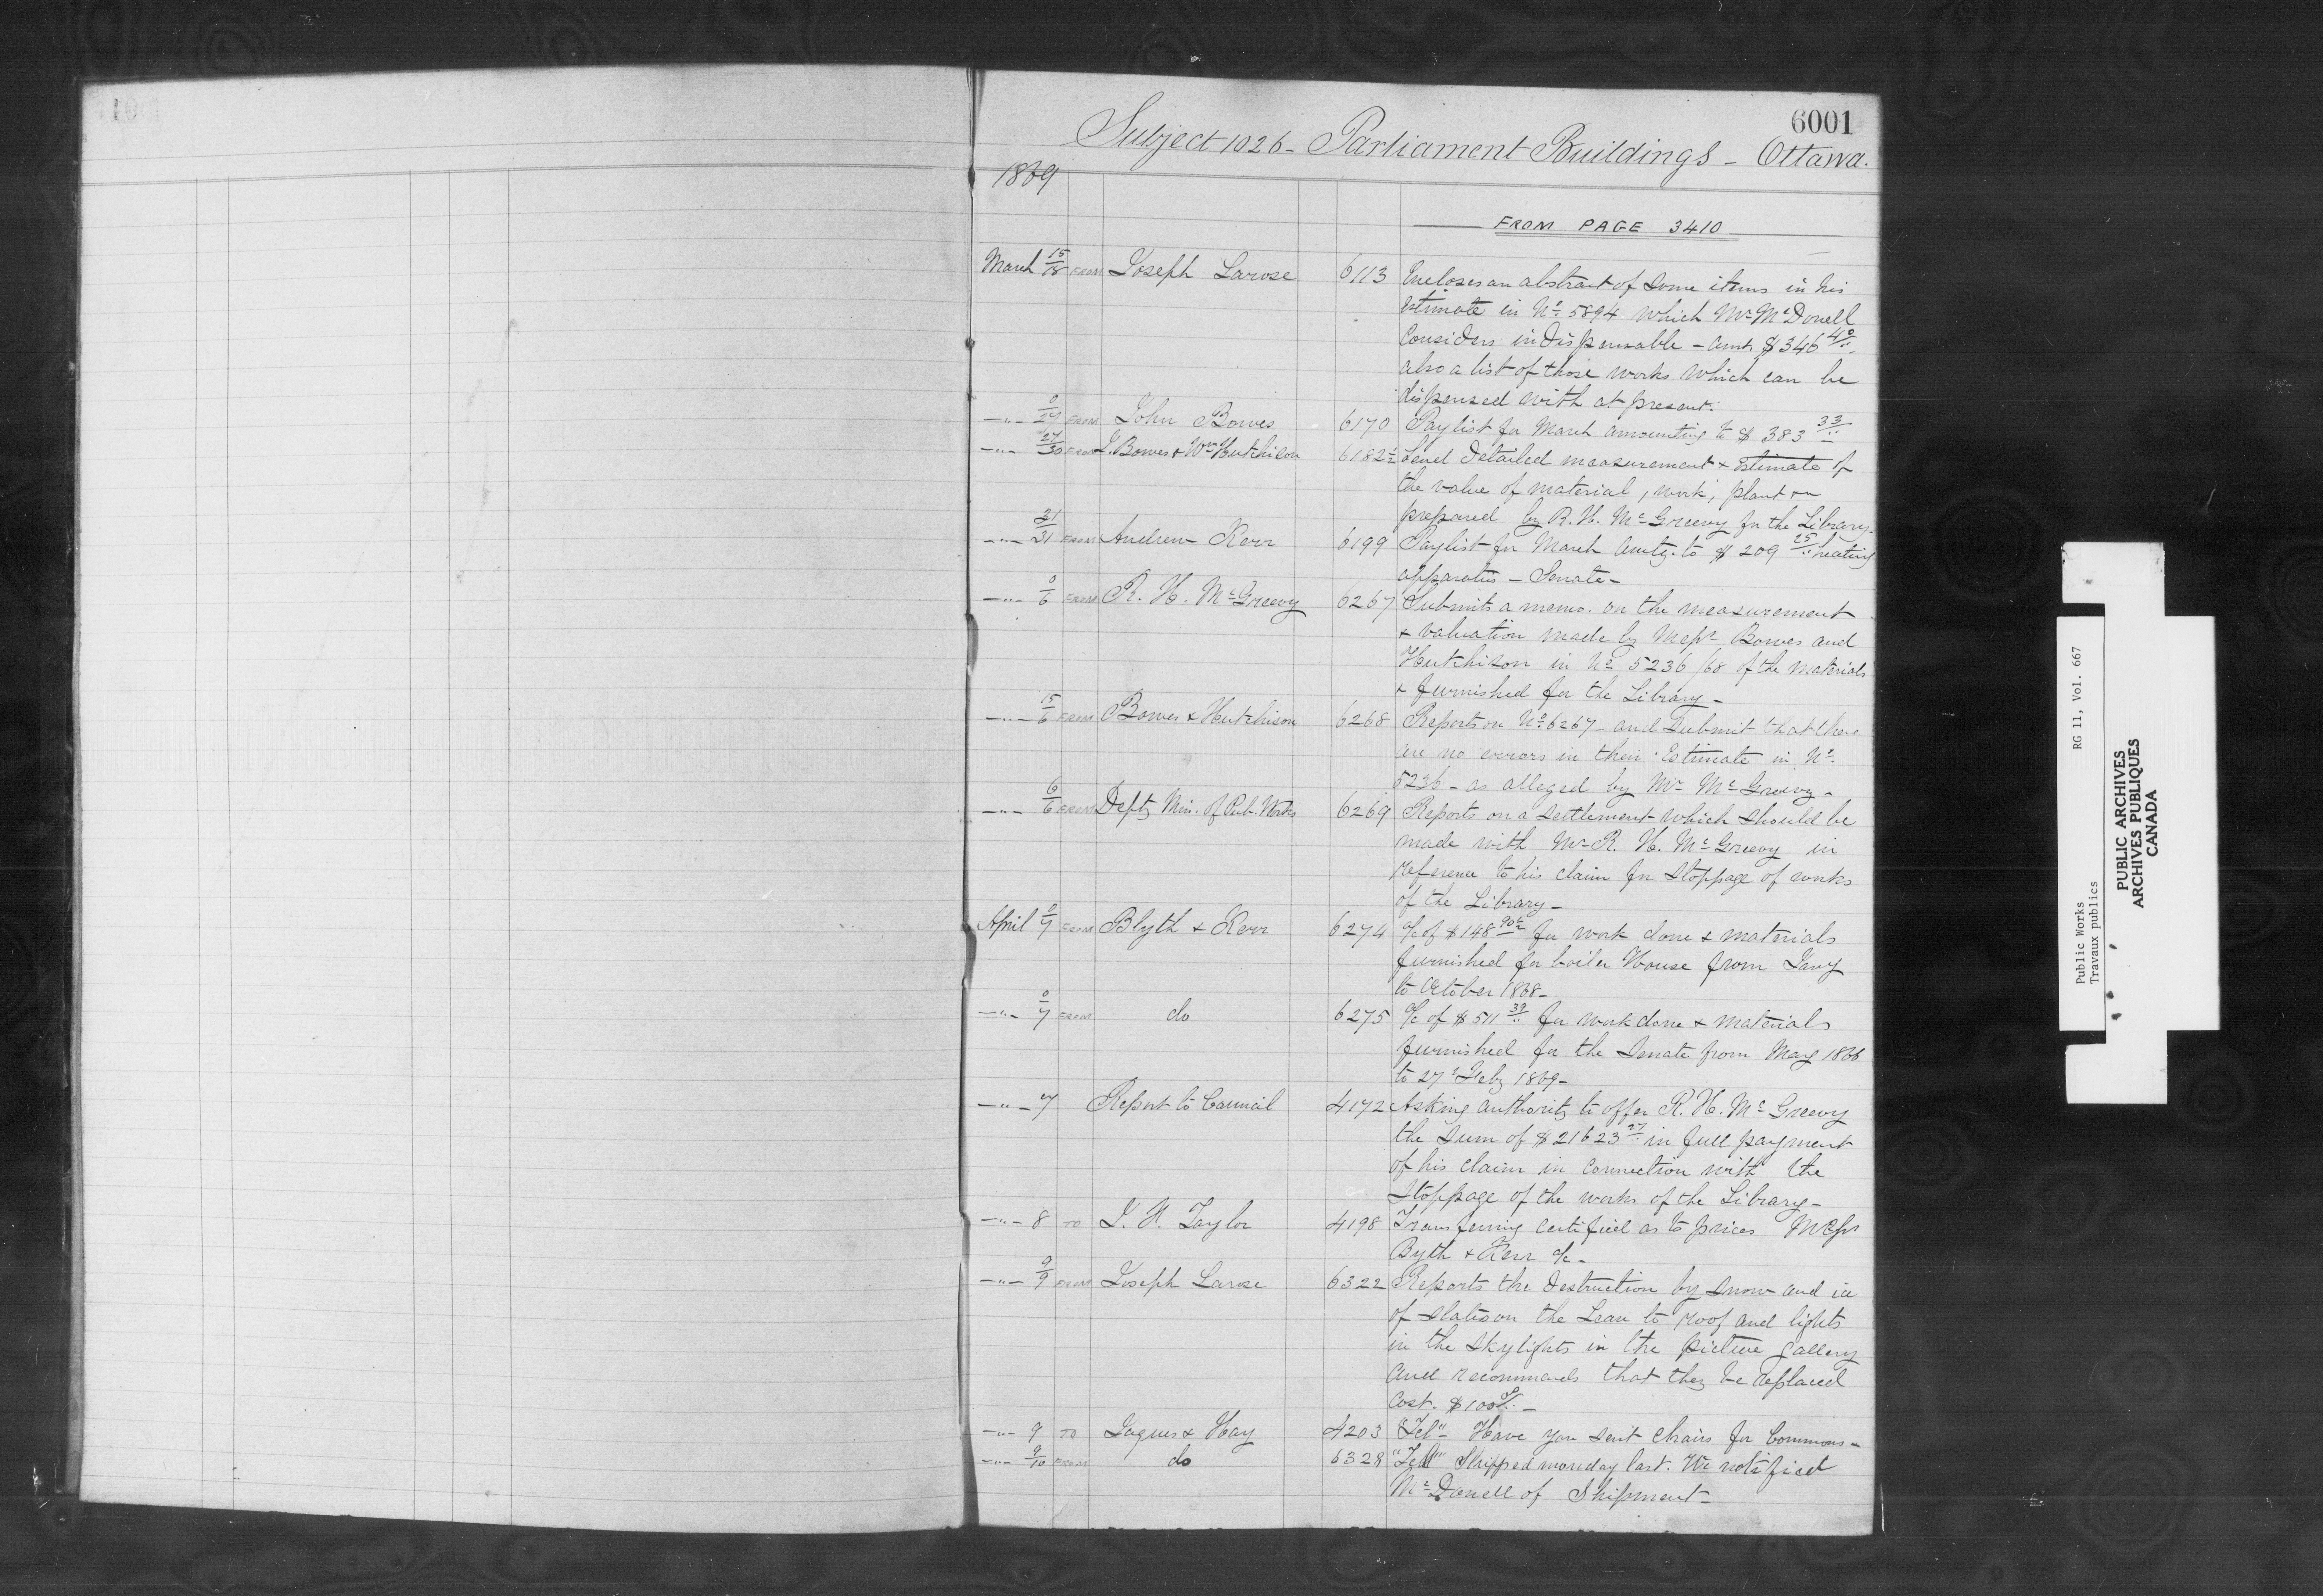 6001
Subject 1026 - Parliament Buildings - Ottawa.
1869
FROM PAGE 3410
March 15/18 FROM Joseph Larose 6113 Encloses an abstract of some items in his
Estimate in No. 5894 which Mr McDonell
Considers indispensable - amt. $346 40/..
also a list of those works which can be
dispensed with at present.
-"- 0/27 FROM John Bowes 6170 Paylist for March amounting to $383 33/..
-"- 27/30 FROM J. Bowes & Wm Hutchison 6182½ Send detailed measurement & Estimate of
the value of material, work, plant &c
prepared by R. H. McGreevy for the Library.
-"- 31/31 FROM Andrew Kerr 6199 Paylist for March amtg. to $209 25/.. heating
apparatus - Senate -
-"- 0/6 FROM R. H. McGreevy 6267 Submits a memo. on the measurement
& valuation made by Messrs Bowes and
Hutchison in No 5236/68 of the materials
& furnished for the Library -
-"- 15/6 FROM Bowes & Hutchison 6268 Reports on No. 6267 - and Submit that there
are no errors in their Estimate in No.
5236 - as alleged by Mr McGreevy -
-"- 6/6 FROM Depty Min. of Pub. Works 6269 Reports on a settlement which should be
made with Mr R. H. McGreevy in
reference to his claim for stoppage of works
of the Library -
April 0/7 FROM Blyth & Kerr 6274 a/c of $148 90c for work done & materials
furnished for boiler House from Jany
to October 1868 -
-"- 0/7 FROM do 6275 a/c of $511 39/.. for work done & materials
furnished for the Senate from May 1866
to 27 Feby 1869 -
-"- 7 Report to Council 4172 Asking authority to offer R. H. McGreevy
the Sum of $21623 27/.. in full payment
of his claim in connection with the
Stoppage of the works of the Library -
-"- 8 TO J. H. Taylor 4198 Transferring certificd as to prices Messrs
Byth & Kerr a/c -
-"- 9/9 FROM Joseph Larose 6322 Reports the destruction by snow and ice
of slates on the Lean to roof and lights
in the skylights in the picture gallery
and recommends that they be replaced
Cost. $100 0/.. -
-"- 9 TO Jaques & Hay 4203 "Tel" - Have you sent chairs for Commons -
-"- 9/10 FROM do 6328 "Tel" Shipped monday last. We notified
McDonell of Shipment -
Public Works RG 11, Vol. 667
Travaux publics
PUBLIC ARCHIVES
ARCHIVES PUBLIQUES
CANADA